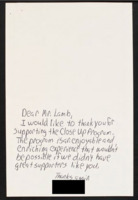 Dear Mr. Lamb,
I would like to thank you for
supporting the Close Up Program.
The program is an enjoyable and
enriching experience that wouldn't
be possible if we didn't have
great supporters like you.
Thanks again